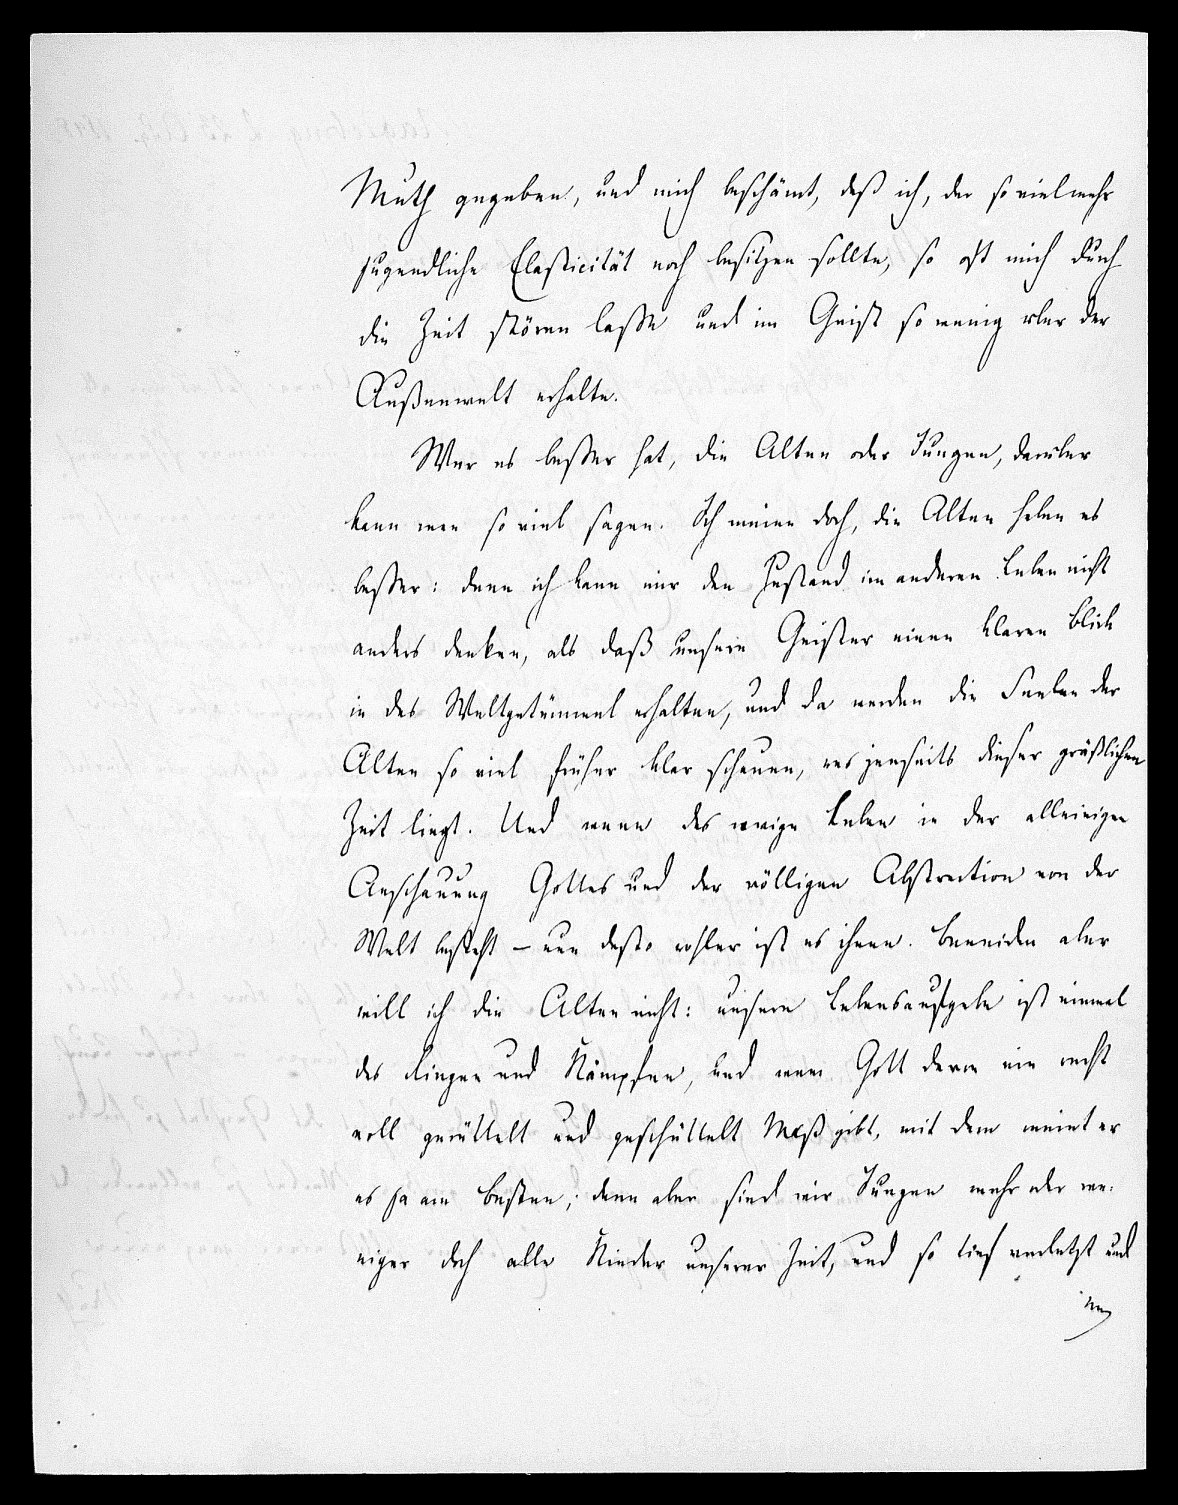 Muth gegeben, und mich beschämt, daß ich, der so viel mehr
jugendliche Elasticität noch besitzen sollte, so oft mich durch
die Zeit stören lasse und im Geist so wenig über der
Außenwelt erhalte.
Wer es besser hat, die Alten oder Jungen, darüber
kann man so viel sagen. Ich meine doch, die Alten haben es
besser: denn ich kann mir den Zustand im anderen Leben nicht
anders denken, als daß unsere Geister einen klaren Blick
in das Weltgetümmel erhalten, und da werden die Seelen der
Alten so viel früher klar schauen, was jenseits dieser gräßlichen
Zeit liegt. Und wenn das ewige Leben in der alleinigen
Anschauung Gottes und der völligen Abstraction von der
Welt besteht – nun desto wohler ist es ihnen. Beneiden aber
will ich die Alten nicht: unsere Lebensaufgabe ist einmal
das Ringen und Kämpfen, und wem Gott davon ein recht
voll gerüttelt und geschüttelt Maß gibt, mit dem meint er
es ja am Besten; dann aber sind wir Jungen mehr oder we-
niger doch alle Kinder unserer Zeit, und so tief verletzt und